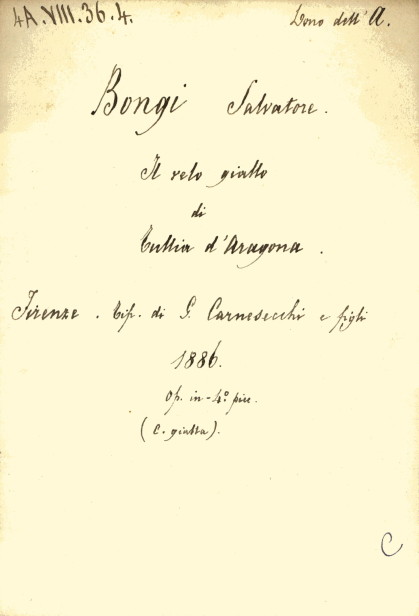 4A.VIII.36.4. Dono dell'A.
Bongi Salvatore.
Il velo giallo
di
Tullia d'Aragona.
Firenze. Tip. di G. Carnesecchi e figli
1886.
Op. in-4º picc.
(C. gialla).
C